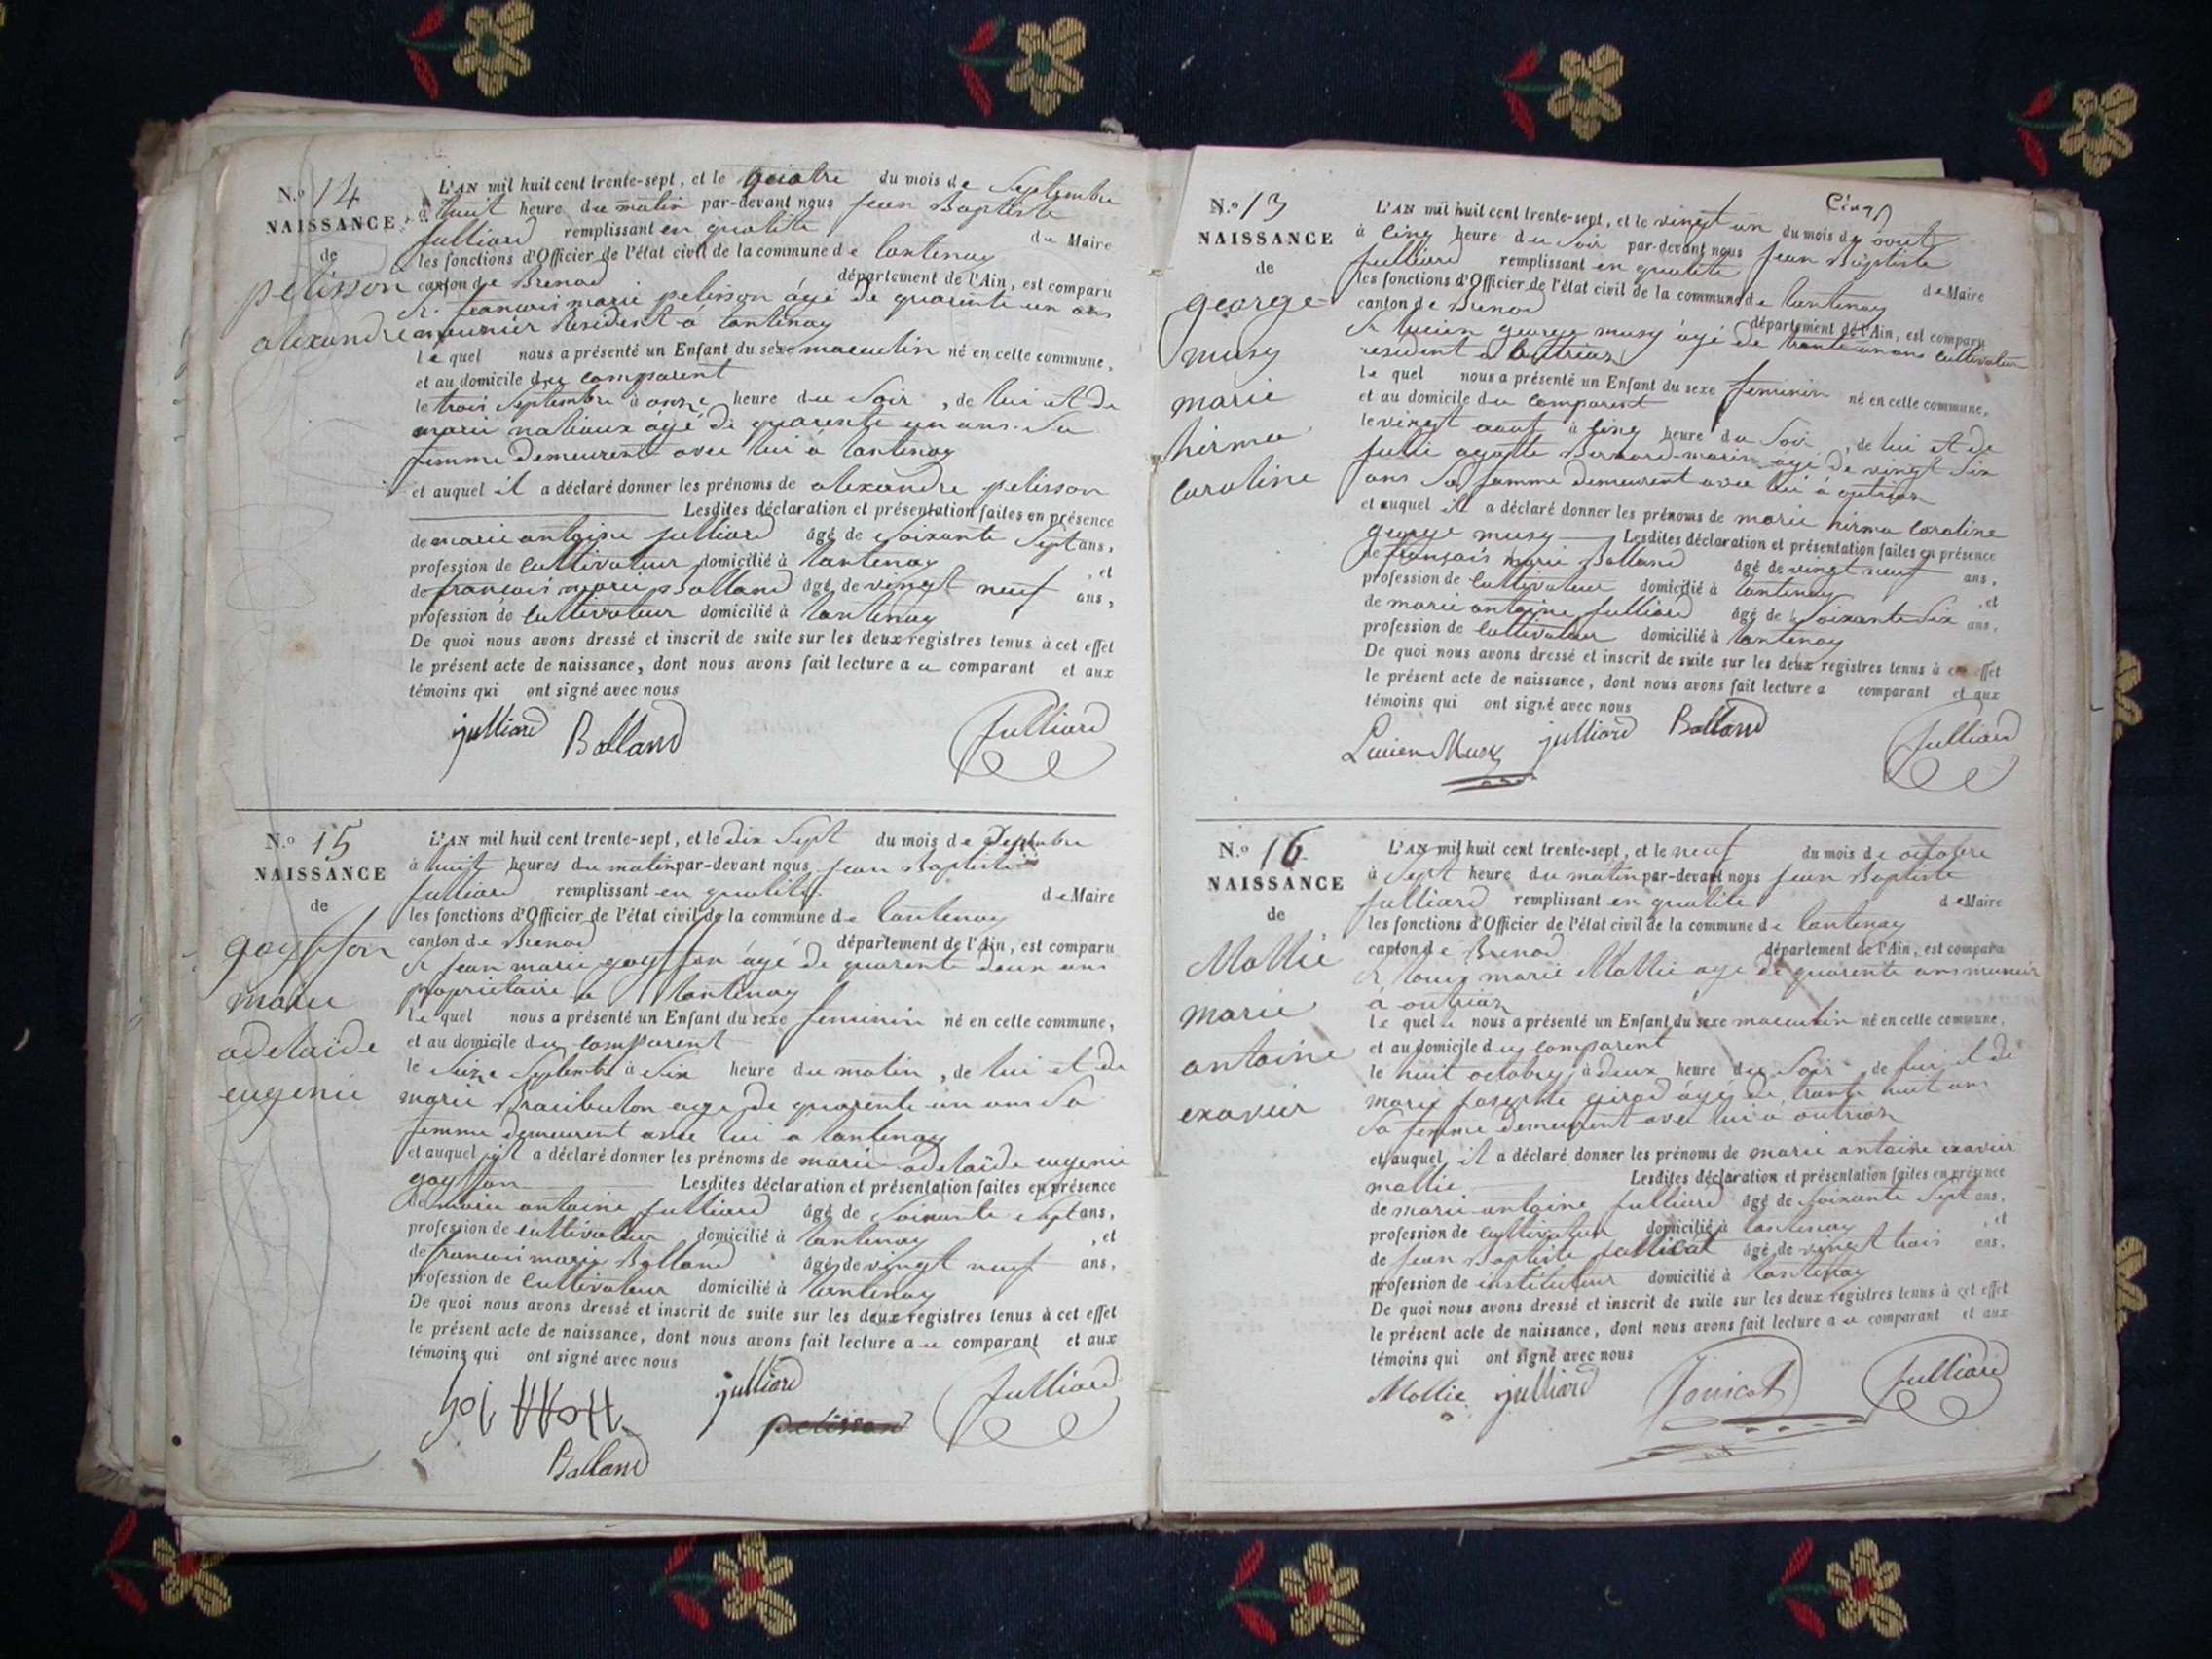 N.º 14
NAISSANCE
de
pelisson
alexandre
L'AN mil huit cent trente-sept, et le quatre du mois de Septembre
à huit heure du matin par-devant nous jean Baptiste
julliard remplissant en qualité du Maire
les fonctions d'Officier de l'état civil de la commune de lantenay
canton de Brenod département de l'Ain, est comparu
Sr. francois marie pelisson âgé de quarente un ans
meunier résident à lantenay
lequel nous a présenté un Enfant du sexe masculin né en cette commune,
et au domicile du comparent
le trois Septembre à onze heure du Soir, de lui et de
marie âgé de quarente un ans Sa
femme demeurent avec lui à lantenay
et auquel il a déclaré donner les prénoms de alexandre pelisson
Lesdites déclaration et présentation faites en présence
de marie antoine julliard âgé de soixante Sept ans,
profession de cultivateur domicilié à lantenay, et
de francois marie Balland âgé de vingt neuf ans,
profession de cultivateur domicilié à lantenay
De quoi nous avons dressé et inscrit de suite sur les deux registres tenus à cet effet
le présent acte de naissance, dont nous avons fait lecture au comparant et aux
témoins qui ont signé avec nous
julliard Balland julliard
N.º 15
NAISSANCE
de
goyffon
marie
adelaïde
eugenie
L'AN mil huit cent trente-sept, et le dix Sept du mois de Septembre
à huit heures du matin par-devant nous jean Baptiste
julliard remplissant en qualité de Maire
les fonctions d'Officier de l'état civil de la commune de lantenay
canton de Brenod département de l'Ain, est comparu
Sr jean marie goyffon âgé de quarente deux ans
propriétaire a lantenay
lequel nous a présenté un Enfant du sexe feminin né en cette commune,
et au domicile du comparent
le Seize Septembre à Six heure du matin, de lui et de
marie age de quarente un ans Sa
femme demeurent avec lui a lantenay
et auquel il a déclaré donner les prénoms de marie adelaïde eugenie
goyffon Lesdites déclaration et présentation faites en présence
de marie antoine julliard âgé de soixante sept ans,
profession de cultivateur domicilié à lantenay, et
de francois marie Balland âgé de vingt neuf ans,
profession de cultivateur domicilié à lantenay
De quoi nous avons dressé et inscrit de suite sur les deux registres tenus à cet effet
le présent acte de naissance, dont nous avons fait lecture au comparant et aux
témoins qui ont signé avec nous
julliard julliard
pelisson
Balland
N.º 13
NAISSANCE
de
george
musy
marie
hirma
caroline
L'AN mil huit cent trente-sept, et le vingt un du mois de aout
à cinq heure du Soir par-devant nous jean Baptiste
julliard remplissant en qualité de Maire
les fonctions d'Officier de l'état civil de la commune de lantenay
canton de Brenod département de l'Ain, est comparu
Sr lucien george musy âgé de trente un ans cultivateur
resident a outriaz
lequel nous a présenté un Enfant du sexe feminin né en cette commune,
et au domicile du comparent
le vingt aout à cinq heure du Soir, de lui et de
julie agatte Bernard-marin âgé de vingt Six
ans Sa famme demeurent avec lui à outriaz
et auquel il a déclaré donner les prénoms de marie hirma caroline
george musy Lesdites déclaration et présentation faites en présence
de françois marie Balland âgé de vingt neuf ans,
profession de cultivateur domicilié à lantenay, et
de marie antoine julliard âgé de Soixante Six ans,
profession de cultivateur domicilié à lantenay
De quoi nous avons dressé et inscrit de suite sur les deux registres tenus à cet effet
le présent acte de naissance, dont nous avons fait lecture a comparant et aux
témoins qui ont signé avec nous
Lucien Musy julliard Balland julliard
N.º 16
NAISSANCE
de
Mollie
marie
antoine
exavier
L'AN mil huit cent trente-sept, et le neuf du mois de octobre
à Sept heure du matin par-devant nous jean Baptiste
julliard remplissant en qualité de Maire
les fonctions d'Officier de l'état civil de la commune de lantenay
canton de Brenod département de l'Ain, est comparu
Sr louis marie Mollie age de quarente ans
à outriaz
lequel nous a présenté un Enfant du sexe masculin né en cette commune,
et au domicile du comparent
le huit octobre à deux heure du Soir de lui et de
marie josephte girod âgé de trante huit ans
Sa femme demeurent avec lui a outriaz
et auquel il a déclaré donner les prénoms de marie antoine exavier
mollie Lesdites déclaration et présentation faites en présence
de marie antoine julliard âgé de soixante Sept ans,
profession de cultivateur domicilié à lantenay, et
de jean Baptiste âgé de vingt trois ans,
profession de instituteur domicilié à lantenay
De quoi nous avons dressé et inscrit de suite sur les deux registres tenus à cet effet
le présent acte de naissance, dont nous avons fait lecture au comparant et aux
témoins qui ont signé avec nous
Mollie julliard julliard